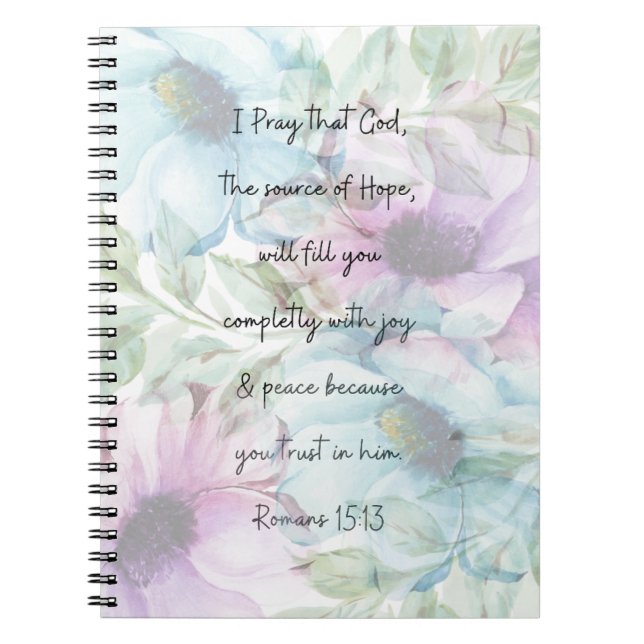 I Pray that God,
the source of Hope,
will fill you
completly with joy
& peace because
you trust in him.
Romans 15:13